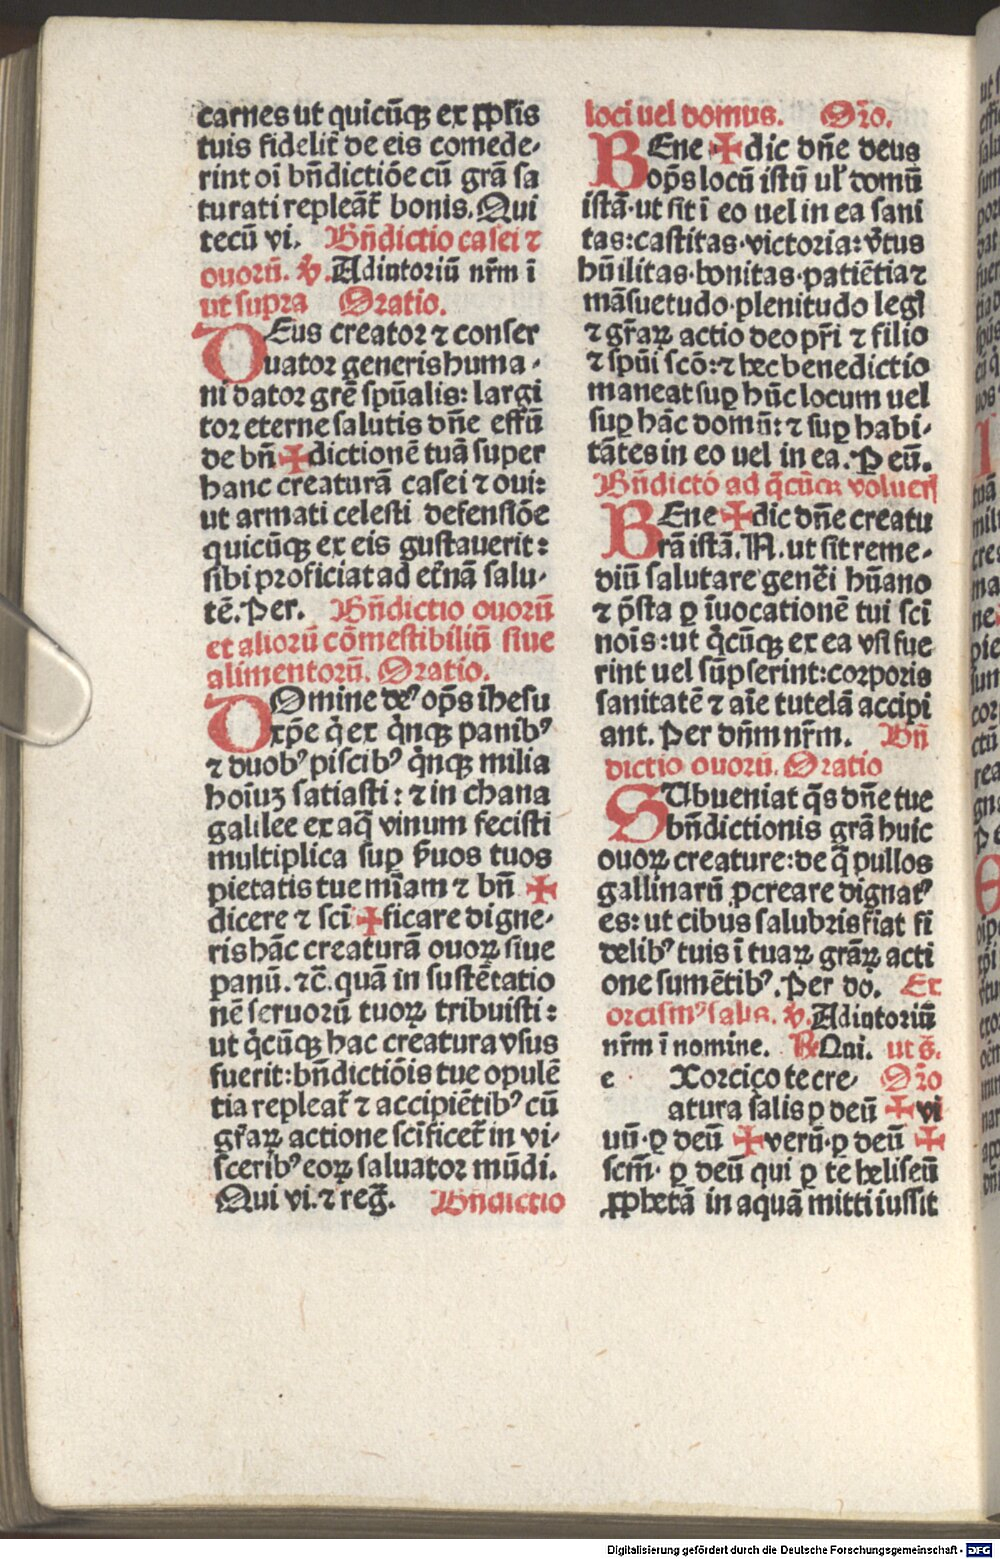 carnes ut quicūqꝫ ex ꝓp̄lis
tuis fidelit̄ de eis comede-
rint oī bn̄dictiōe cū grā sa
turati repleāt̄ bonis. Qui
tecū vi. Bn̄dictio casei ⁊
ouorū. ℣. Adiutoriū nr̄m ī
ut supra Oratio.
DEus creator ⁊ conser
uator generis huma-
ni dator grē sp̄ualis: largi
tor eterne salutis dn̄e effū
de bn̄ ✠ dictionē tuā super
hanc creaturā casei ⁊ oui:
ut armati celesti defensiōe
quicūqꝫ ex eis gustauerit:
sibi proficiat ad et̄nā salu-
tē. Per. Bn̄dictio ouorū
et aliorū cōmestibiliū siue
alimentorū. Oratio.
DOmine deꝰ op̄s ih̄esu
xp̄e q̇ ex q̇nqꝫ panibꝰ
⁊ duobꝰ piscibꝰ q̇nqꝫ milia
hoīuꝫ satiasti: ⁊ in chana
galilee ex aq̄ vinum fecisti
multiplica suꝑ ẜuos tuos
pietatis tue mīam ⁊ bn̄ ✠
dicere ⁊ scī ✠ ficare digne-
ris hāc creaturā ouoꝝ siue
panū. ⁊c̄. quā in sustētatio
nē seruorū tuoꝝ tribuisti:
ut q̇cūqꝫ hac creatura vsus
fuerit: bn̄dictiōis tue opulē
tia repleat̄ ⁊ accipiētibꝰ cū
gr̄aꝝ actione scificet̄ in vi-
sceribꝰ eoꝝ saluator mūdi.
Qui vi. ⁊ reḡ. Bn̄dictio
loci uel domus. Or̄o.
BEne ✠ dic dn̄e deus
op̄s locū istū ul̄ domū
istā. ut sit ī eo uel in ea sani
tas: castitas. victoria: v̄tus
hūilitas. bonitas. patiētia ⁊
māsuetudo. plenitudo legꝭ
⁊ gr̄aꝝ actio deo pr̄i ⁊ filio
⁊ sp̄ui scō: ⁊ hec benedictio
maneat suꝑ hūc locum uel
suꝑ hāc domū: ⁊ suꝑ habi-
tātes in eo uel in ea. P eū.
Bn̄dictō ad q̄cūqꝫ voluerꝭ
BEne ✠ dic dn̄e creatu
rā istā. N. ut sit reme-
diū salutare gen̄ei hūano
⁊ p̄sta ꝑ īuocationē tui scī
noīs: ut q̇cūqꝫ ex ea vsi fue
rint uel sūpserint: corporis
sanitatē ⁊ aīe tutelā accipi
ant. Per dn̄m nr̄m. Bn̄
dictio ouorū. Oratio
SUbueniat q̄s dn̄e tue
bn̄dictionis grā huic
ouoꝝ creature: de q̄ pullos
gallinarū ꝓcreare dignatꝰ
es: ut cibus salubris fiat fi
delibꝰ tuis ī tuaꝝ grāꝝ acti
one sumētibꝰ. Per dō. Ex
orcismꝰ salis. ℣. Adiutoriū
nr̄m ī nomine. ℟ Qui. ut s̄.
e Xorcizo te cre- Or̄o
atura salis ꝑ deū ✠ vi
uū. ꝑ deū ✠ verū. ꝑ deū ✠
scm̄. ꝑ deū qui ꝑ te heliseū
ꝓphetā in aquā mitti iussit
Digitalisierung gefördert durch die Deutsche Forschungsgemeinschaft - DFG